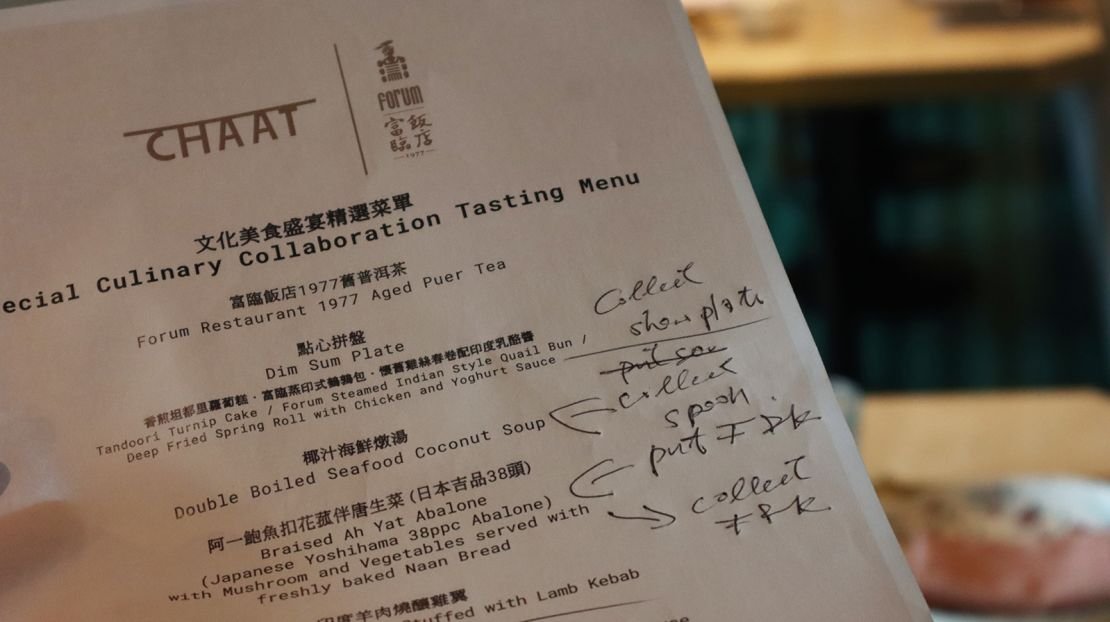 CHAAT
FORUM
富臨飯店
1977
文化美食盛宴精選菜單
ecial Culinary Collaboration Tasting Menu
富臨飯店1977舊普洱茶
Forum Restaurant 1977 Aged Puer Tea
點心拼盤
Dim Sum Plate
香煎坦都里蘿蔔糕・富臨蒸印式鵪鶉包・懷舊雞絲春卷配印度乳酪醬
Tandoori Turnip Cake / Forum Steamed Indian Style Quail Bun /
Deep Fried Spring Roll with Chicken and Yoghurt Sauce
椰汁海鮮燉湯
Double Boiled Seafood Coconut Soup
阿一鮑魚扣花菰伴唐生菜 (日本吉品38頭)
Braised Ah Yat Abalone
(Japanese Yoshihama 38ppc Abalone)
with Mushroom and Vegetables served with
freshly baked Naan Bread
印度羊肉燒釀雞翼
Stuffed with Lamb Kebab
Collect
show plate
collect
spoon
put F & K
collect
F & K